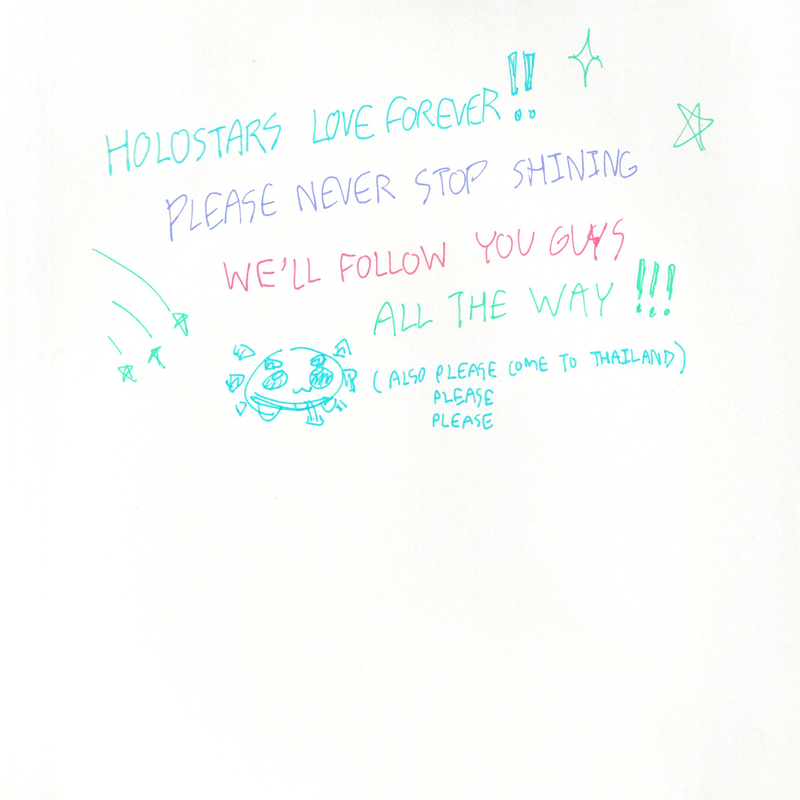 HOLOSTARS LOVE FOREVER!!
PLEASE NEVER STOP SHINING
WE'LL FOLLOW YOU GUYS
ALL THE WAY !!!
(ALSO PLEASE COME TO THAILAND)
PLEASE
PLEASE